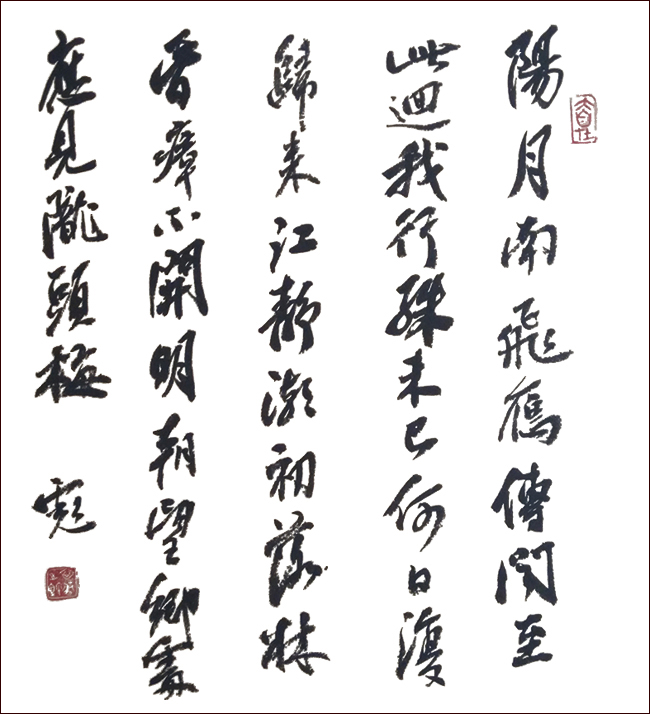 陽月南飛鴈傳聞至
此迴我行殊未已何日復
歸来江静潮初落林
昏瘴不開明朝望鄉處
應見隴頭梅